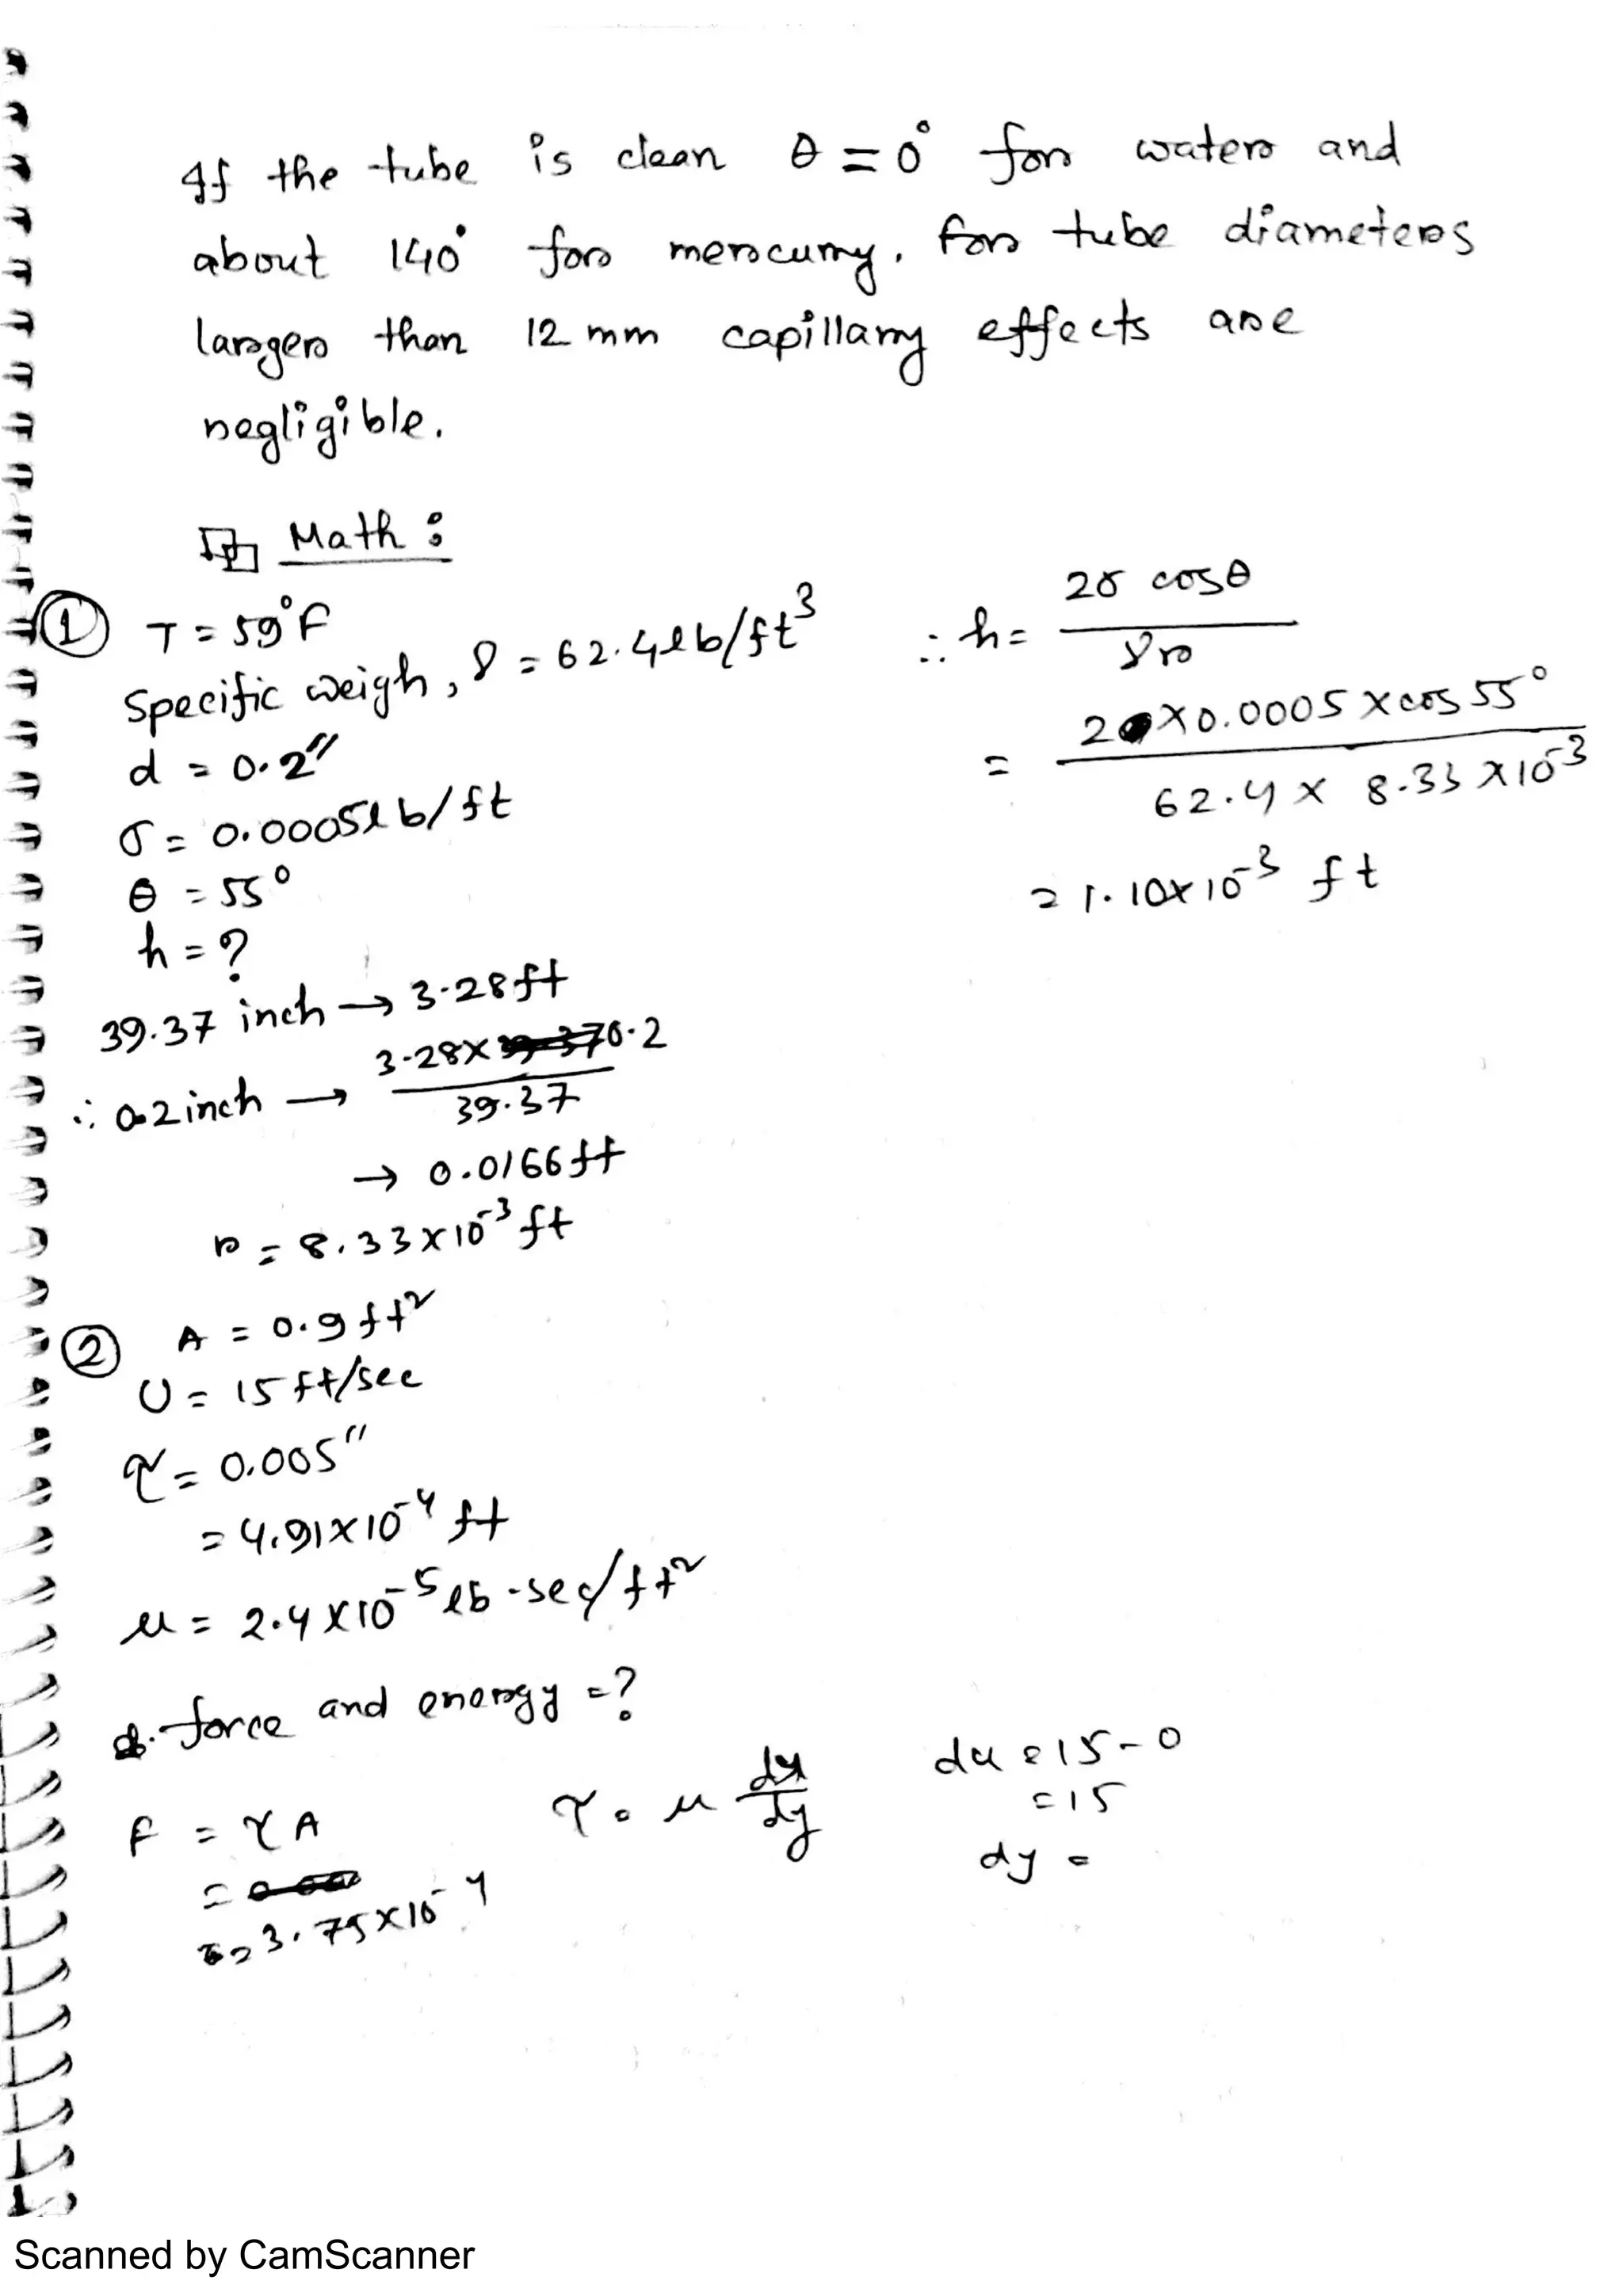 If the tube is clean θ = 0° for water and
about 140° for mercury. For tube diameters
larger than 12 mm capillary effects are
negligible.
Math :
① T = 59°F
Specific weigh, γ = 62.4 lb/ft³
d = 0.2"
σ = 0.0005 lb/ft
θ = 55°
h = ?
39.37 inch → 3.28 ft
∴ 0.2 inch → 3.28 × 0.2 / 39.37
→ 0.0166 ft
r = 8.33 × 10⁻³ ft
∴ h = 2σ cosθ / γr
= 2 × 0.0005 × cos 55° / 62.4 × 8.33 × 10⁻³
= 1.10 × 10⁻³ ft
② A = 0.9 ft²
U = 15 ft/sec
τ = 0.005"
= 4.91 × 10⁻⁴ ft
μ = 2.4 × 10⁻⁵ lb-sec/ft²
force and energy = ?
F = τA
= 3.75 × 10⁻⁴
τ = μ du/dy
du = 15 - 0
= 15
dy =
Scanned by CamScanner